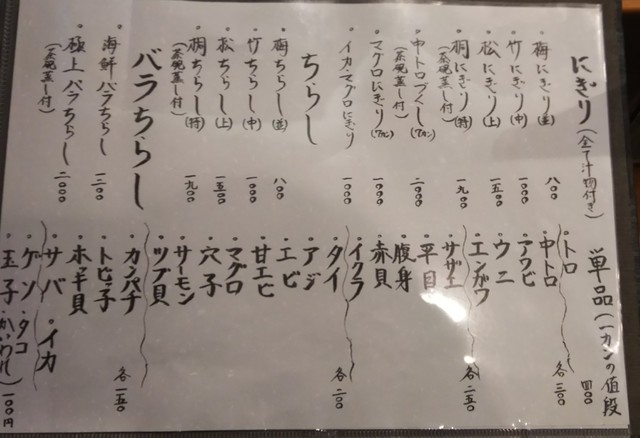 にぎり(全て汁物付き)
・梅にぎり(並) 八〇〇
・竹にぎり(中) 一〇〇〇
・松にぎり(上) 一五〇〇
・桐にぎり(特) 一九〇〇
(茶碗蒸し付)
・中トロづくし(7カン) 二〇〇〇
(茶碗蒸し付)
・マグロにぎり(7カン) 一〇〇〇
・イカ・マグロにぎり 一〇〇〇
ちらし
・梅ちらし(並) 八〇〇
・竹ちらし(中) 一〇〇〇
・松ちらし(上) 一五〇〇
・桐ちらし(特) 一九〇〇
(茶碗蒸し付)
バラちらし
・海鮮バラちらし 一二〇〇
・極上バラちらし 二〇〇〇
(茶碗蒸し付)
単品(一カンの値段)
・トロ 四〇〇
・中トロ 各三〇〇
・アワビ
・ウニ
・エンガワ 各二五〇
・サザエ
・平目
・腹身
・赤貝
・イクラ
・タイ 各二〇〇
・アジ
・エビ
・甘エビ
・マグロ
・穴子
・サーモン
・ツブ貝
・カンパチ 各一五〇
・トビッ子
・ホッキ貝
・サバ・イカ
・ゲソ・タコ
・玉子・かいわれ)一〇〇円